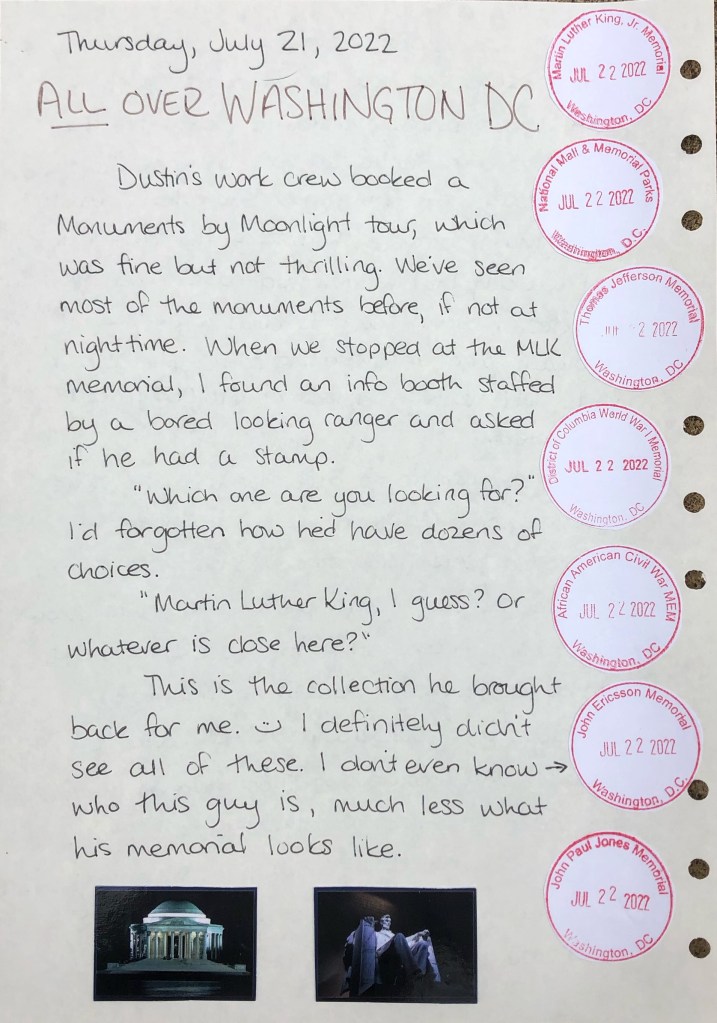 Thursday, July 21, 2022
ALL OVER WASHINGTON DC
Dustin's work crew booked a
Monuments by Moonlight tour, which
was fine but not thrilling. We've seen
most of the monuments before, if not at
nighttime. When we stopped at the MLK
memorial, I found an info booth staffed
by a bored looking ranger and asked
if he had a stamp.
"Which one are you looking for?"
I'd forgotten how he'd have dozens of
choices.
"Martin Luther King, I guess? Or
whatever is close here?"
This is the collection he brought
back for me. I definitely didn't
see all of these. I don't even know →
who this guy is, much less what
his memorial looks like.
Martin Luther King, Jr. Memorial
JUL 22 2022
Washington, DC
National Mall & Memorial Parks
JUL 22 2022
Washington, D.C.
Thomas Jefferson Memorial
2 2022
Washington, DC
District of Columbia World War I Memorial
JUL 22 2022
Washington, DC
African American Civil War MEM
JUL 22 2022
Washington, DC
John Ericsson Memorial
JUL 22 2022
Washington, D.C.
John Paul Jones Memorial
JUL 22 2022
Washington, DC